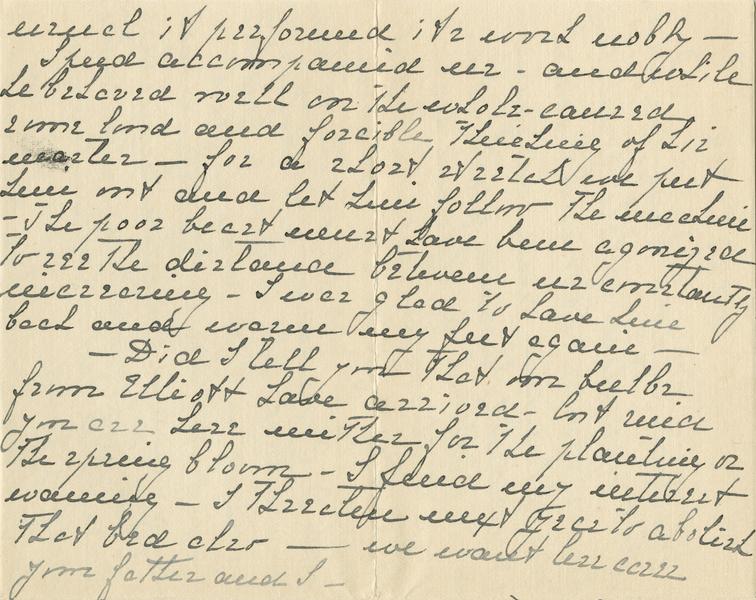 much it performed its work nobly —
Spud accompanied us - and while
he behaved well on the whole - caused
some loud and forcible thinking of his
master — for a short stretch we put
him out and let him follow the machine
- The poor beast must have been agonized
to see the distance between us constantly
increasing - I was glad to have him
back and warm my feet again —
— Did I tell you that our bulbs
from Elliott have arrived - but since
you are here neither for the planting or
the spring bloom - I find my interest
waning - I threaten next year to abolish
that bed also — we want less care
your father and I -